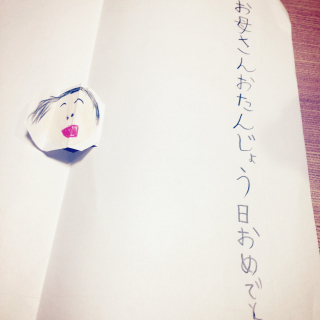 お母さんおたんじょう日おめでと